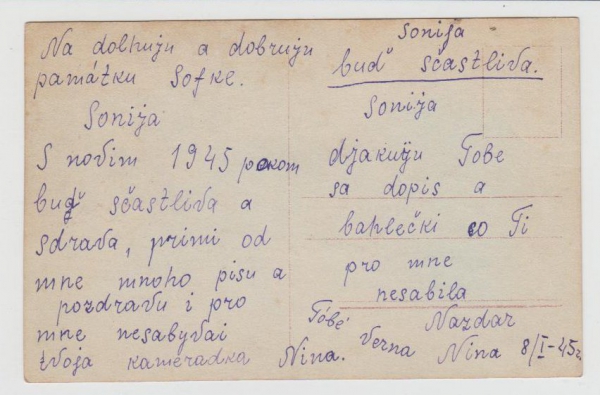 Na dolhuju a dobruju
památku Sofke.
Sonija
S novim 1945 rokom
buď sčastliva a
sdrava, primi od
mne mnoho pisu a
pozdravu i pro
mne nesabyvai
tvoja kameradka Nina.
Sonija
buď sčastliva.
Sonija
djakuju Tobe
sa dopis a
bahlečki co Ti
pro mne
nesabila
Nazdar
Tóbé Verna Nina 8/I-45r.